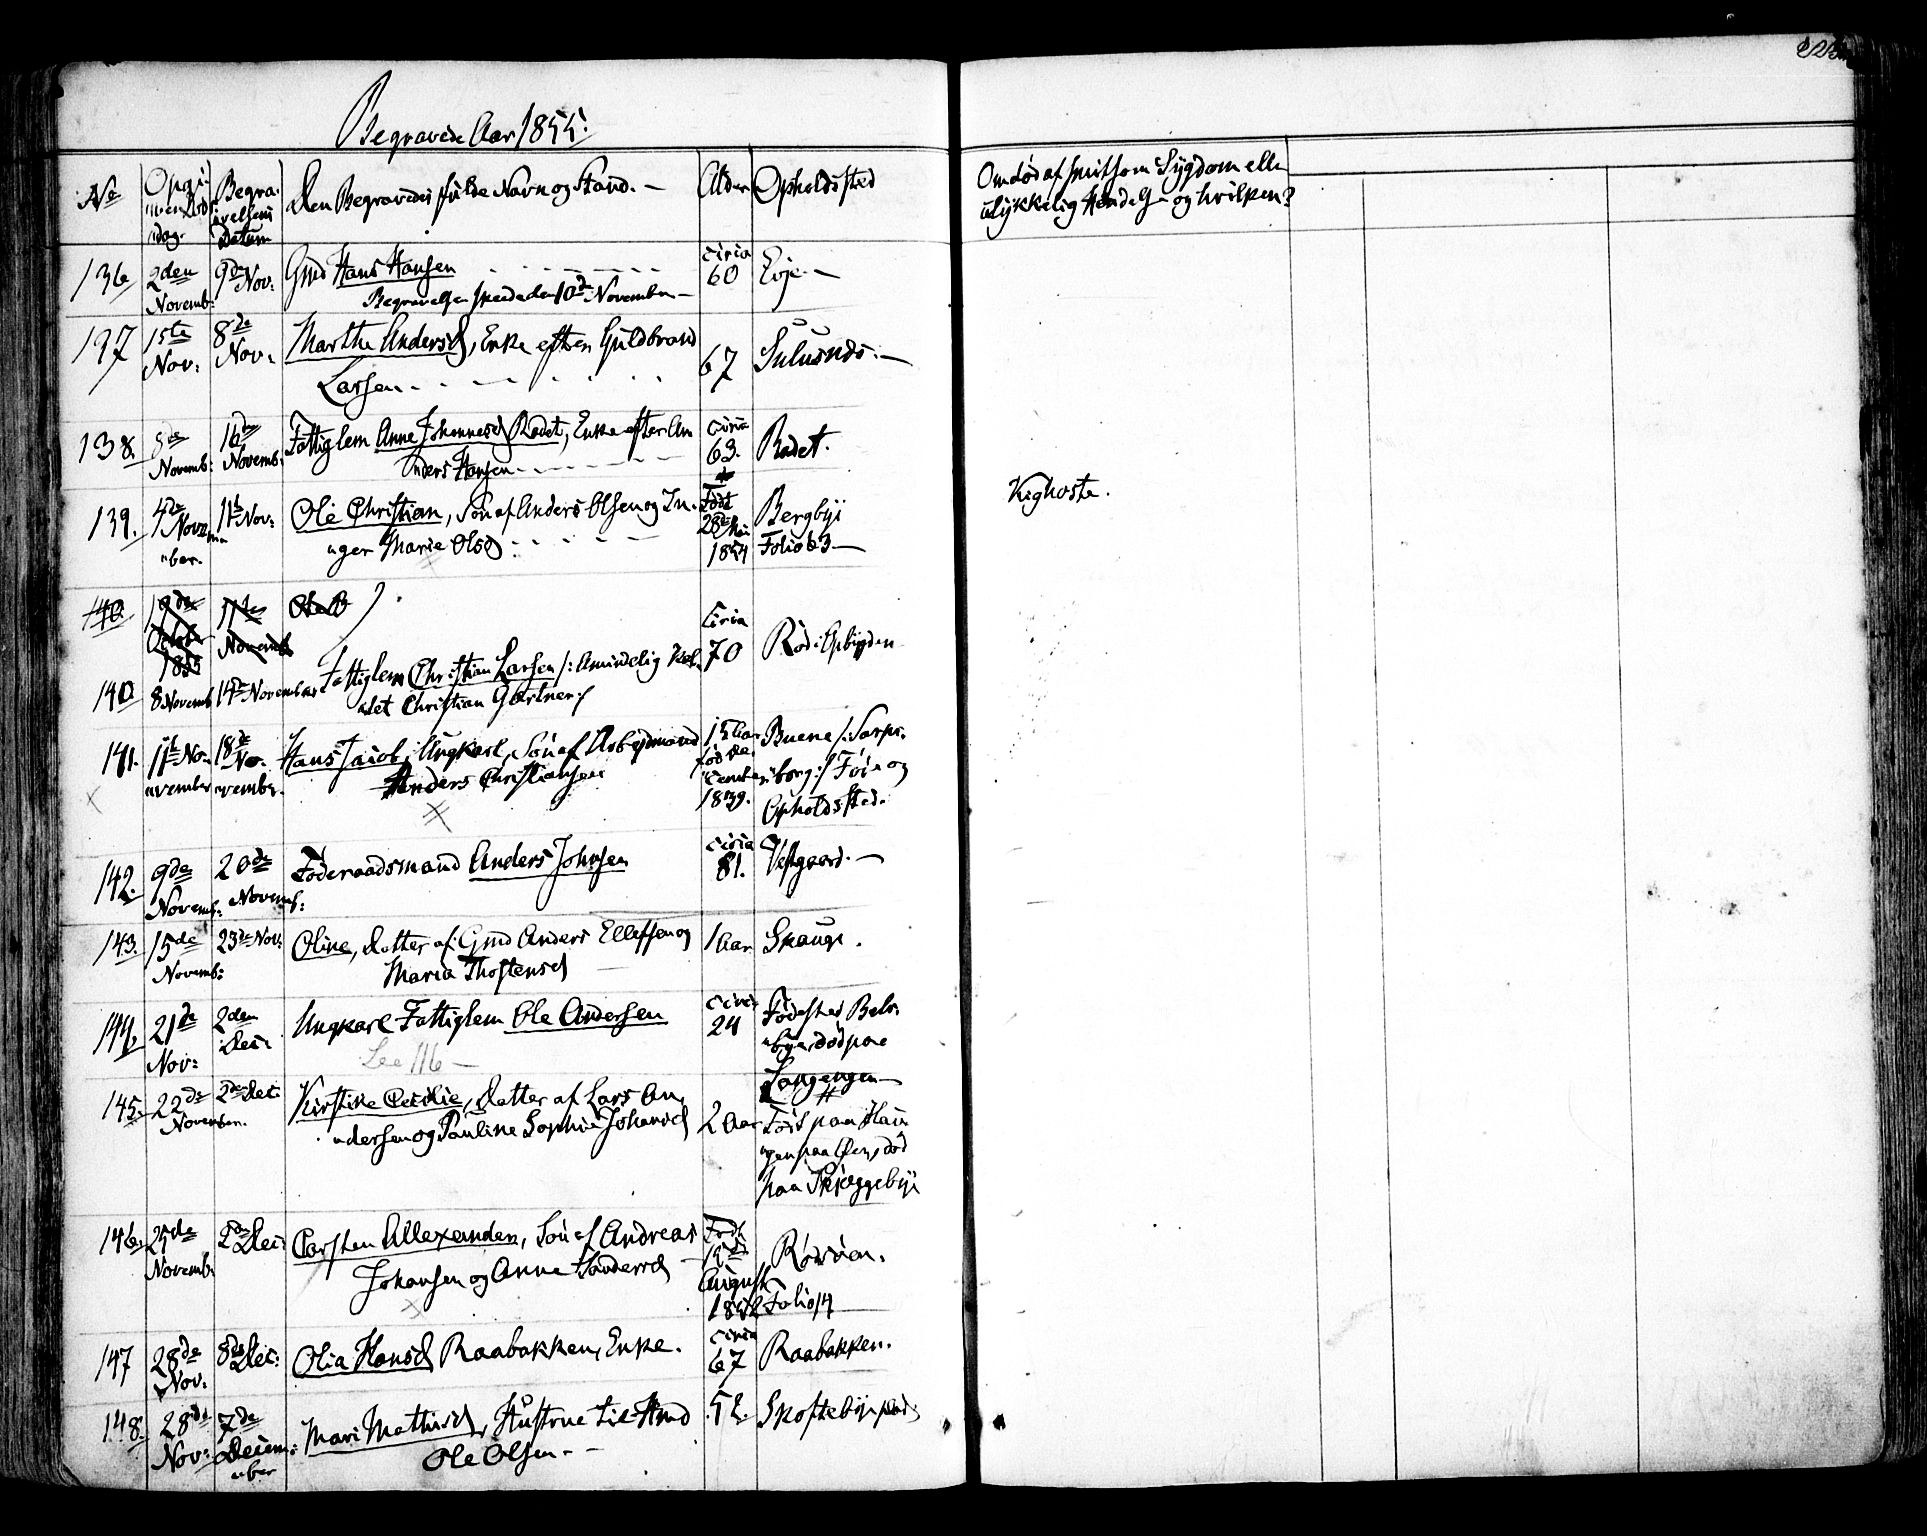 Begravede Aar 1855.
No
Opgiven Dødsdag.
Begravelsens Datum
Den Begravedes fulde Navn og Stand. —
Alder
Opholdssted
Om død af smitsom Sygdom eller
ulykkelig Hændelse og hvilken?
136 2den Novemb: 9de Nov: Gmd Hans Hansen circa 60 Evje. —
Begravelsen skeede den 10de November —
137 1ste Nov: 8de Nov: Marthe Andersd, Enke efter Guldbrand 67 Sulusnds: —
Larsen
138. 5de Novemb: 16de Novemb: Fattiglem Anne Johannesd Rødet, Enke efter An circa 63. Rødet.
nders Hansen
139. 4de November. 11te Nov: Ole Christian, Søn af Anders Olsen og In- Født 28de Mai 1854 Bergbye Folio 63 — Kighoste.
ger Marie Olsd
140 19de October 1855 11te Novemb Ole
140 8 Novemb 14de November Fattiglem Christian Larsen /: Amindelig kal- Circa 70 Rød i Opbygden
det Christian Gartner :/
141. 11te November 18de November. Hans Jacob, Ungkarl, Søn af Arbejdmand 15 Aar fød December 1839. Buene /: Sarps-
Anders Christiansen borg :/ Føde og
Opholdssted.
142. 9de Novemb: 20de Novemb: Føderaadsmand Anders Johnsen circa 81. Vestgaard. —
143. 15de Novemb: 23de Nov: Oline, Datter af Gmd Anders Ellefsen og 1 Aar Skauge.
Maria Thostensd
144. 21de Nov: 2den Dec: Ungkarl Fattiglem Ole Andersen circa 24 Fødested Bels-
See 116 — byen død paa
Langengen —
145. 22de November. 2de Dec: Kirstine Cecilie, Datter af Lars An- 2 Aar Født paa Haugen
dersen og Pauline Sophie Johansd paa Øen, død
paa Skjæggebye
146. 25de Novemb: 2den Dec: Carsten Allexander, Søn af Andreas Født 19de August 1852 Rødsøen.
Johansen og Anne Handersd Folio 14
147 28de Nov. 8de Dec: Olia Hansd Raabakken, Enke. circa 67 Raabakken.
148. 28de Nov: 7de December Mari Mathisd, Hustrue til Hmd 52. Skoftebye
Ole Olsen —